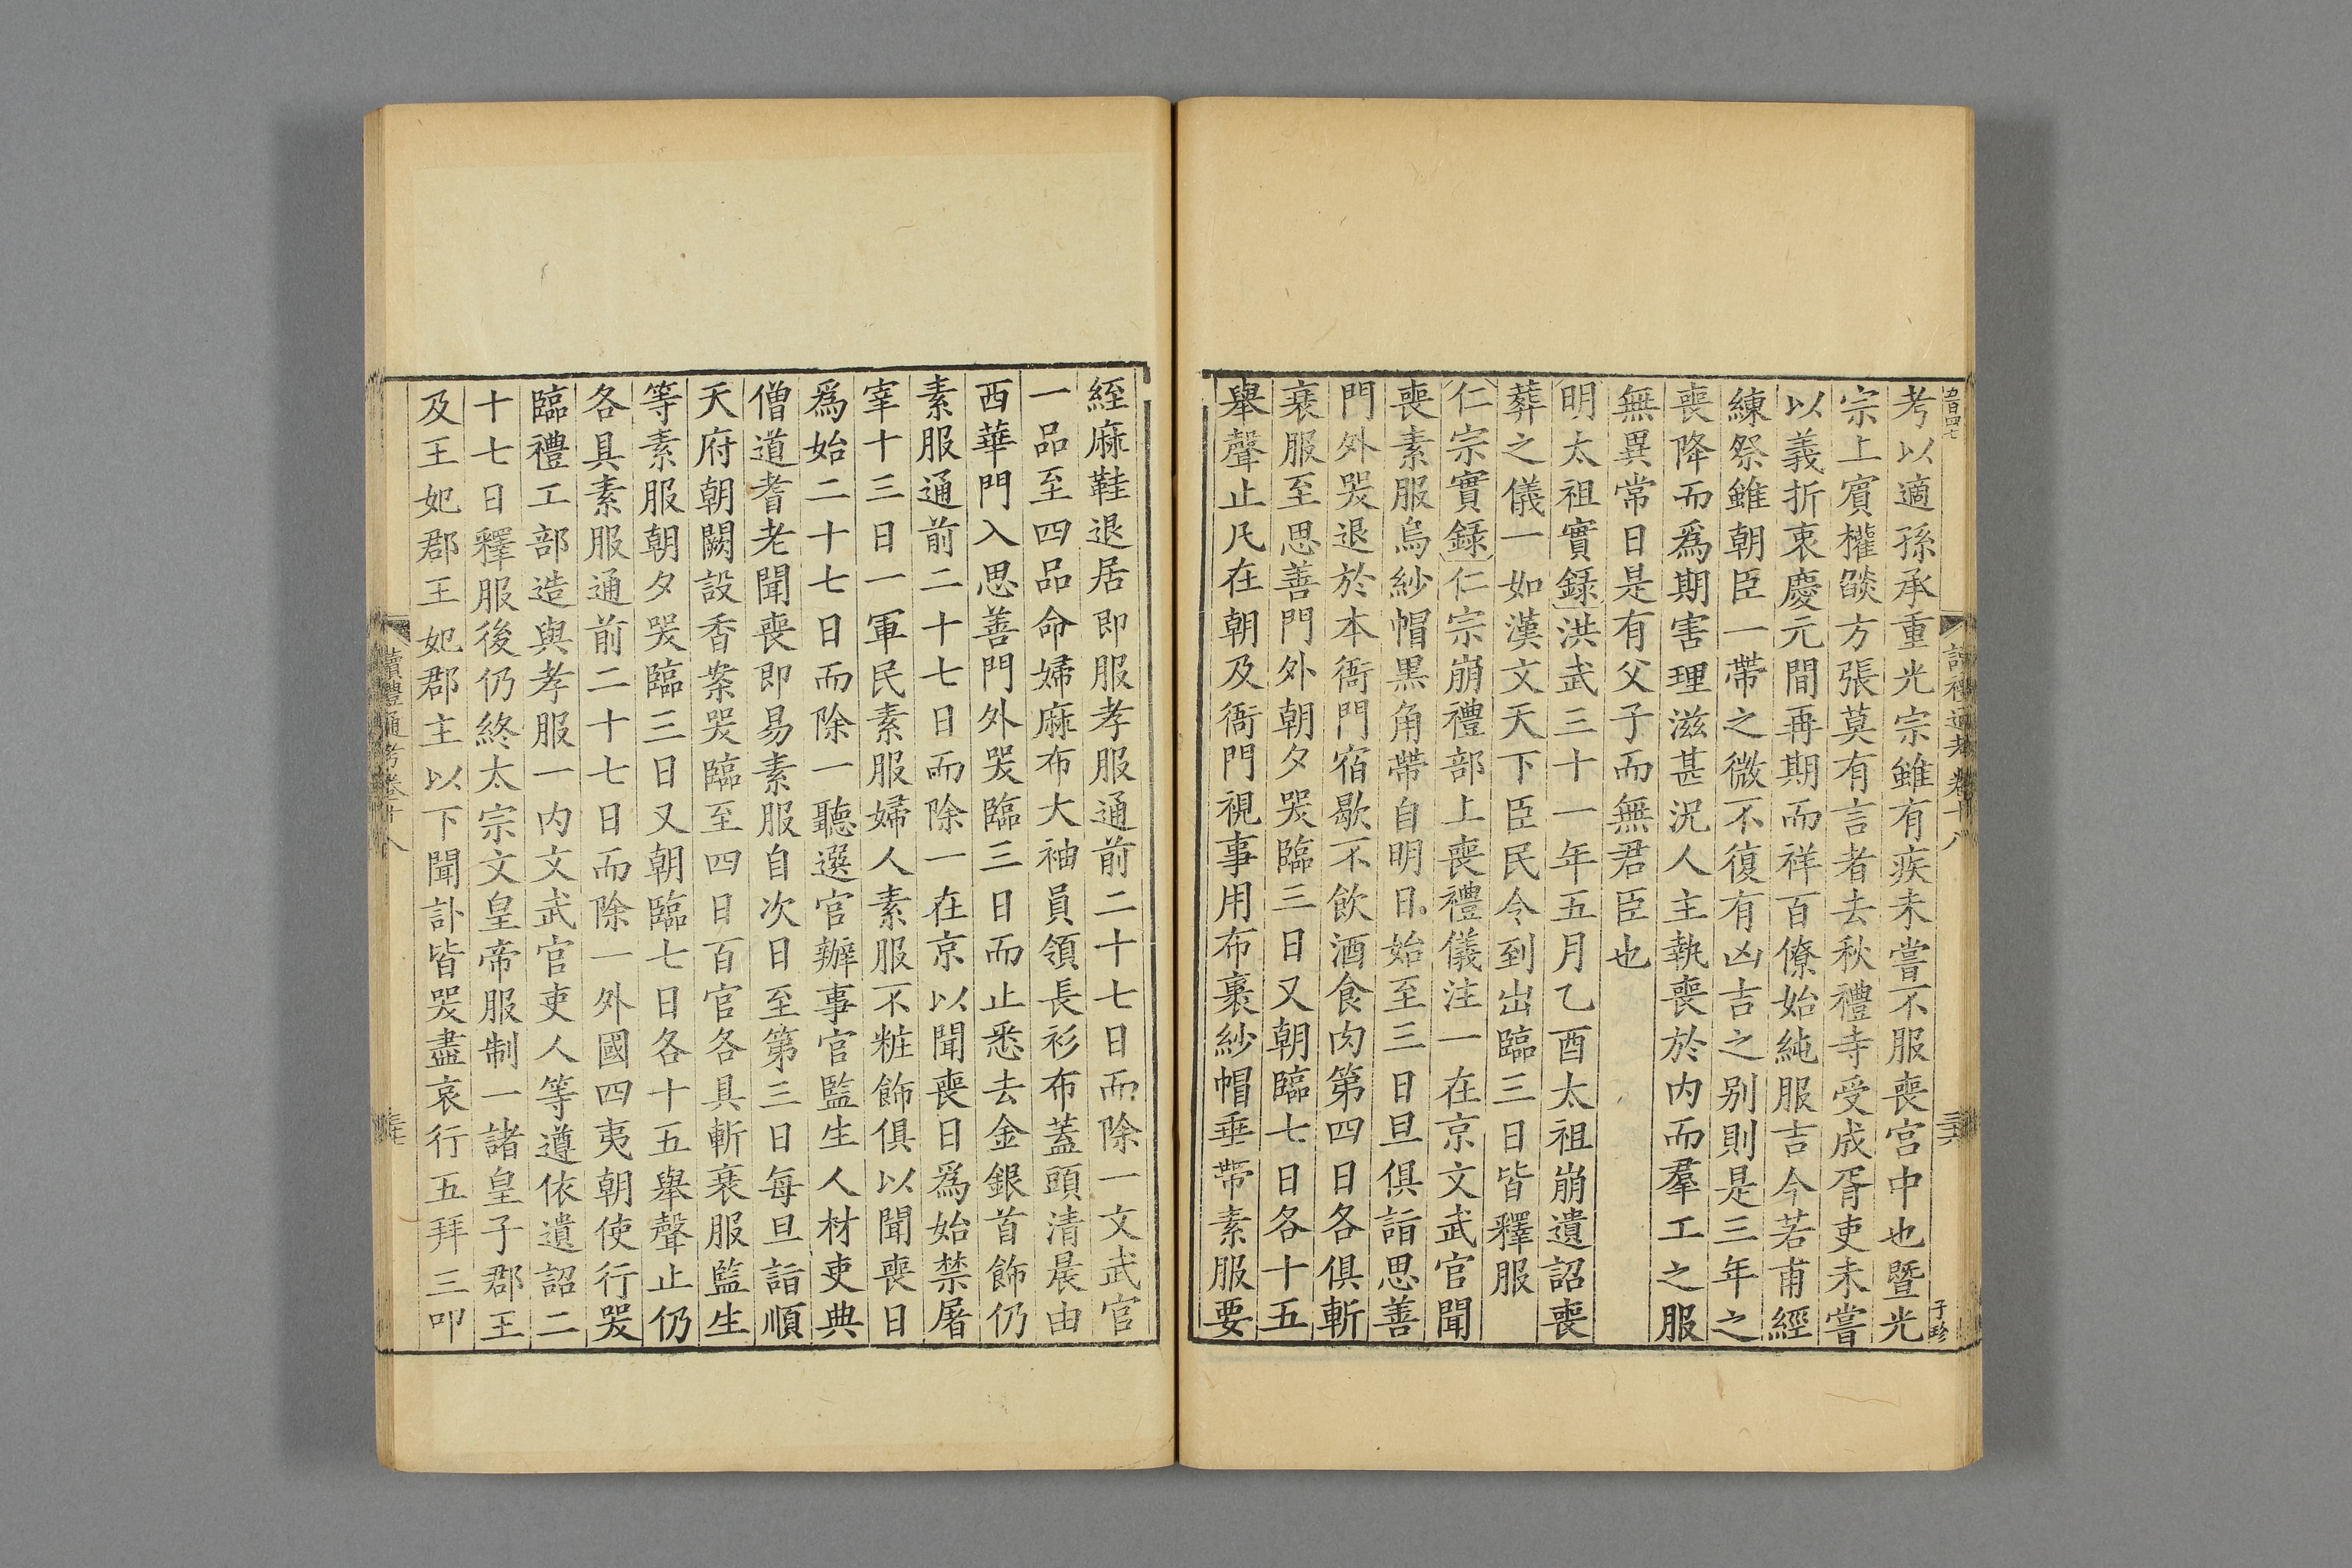 五百四七
讀禮通考卷十八
三十六
子珍
考以適孫承重光宗雖有疾未嘗不服喪宮中也暨光
宗上賓權燄方張莫有言者去秋禮寺受成胥吏未嘗
以義折衷慶元間再期而祥百僚始純服吉今若甫經
練祭雖朝臣一帶之微不復有凶吉之别則是三年之
喪降而爲期害理滋甚況人主執喪於内而羣工之服
無異常日是有父子而無君臣也
明太祖實録洪武三十一年五月乙酉太祖崩遺詔喪
葬之儀一如漢文天下臣民令到出臨三日皆釋服
仁宗實録仁宗崩禮部上喪禮儀注一在京文武官聞
喪素服烏紗帽黒角帶自明日始至三日旦俱詣思善
門外哭退於本衙門宿歇不飲酒食肉第四日各俱斬
衰服至思善門外朝夕哭臨三日又朝臨七日各十五
舉聲止凡在朝及衙門視事用布裹紗帽垂帶素服要
絰麻鞋退居即服孝服通前二十七日而除一文武官
一品至四品命婦麻布大袖員領長衫布蓋頭清晨由
西華門入思善門外哭臨三日而止悉去金銀首飾仍
素服通前二十七日而除一在京以聞喪日爲始禁屠
宰十三日一軍民素服婦人素服不粧飾俱以聞喪日
爲始二十七日而除一聽選官辦事官監生人材吏典
僧道耆老聞喪即易素服自次日至第三日每旦詣順
天府朝闕設香案哭臨至四日百官各具斬衰服監生
等素服朝夕哭臨三日又朝臨七日各十五舉聲止仍
各具素服通前二十七日而除一外國四夷朝使行哭
臨禮工部造與孝服一内文武官吏人等遵依遺詔二
十七日釋服後仍終太宗文皇帝服制一諸皇子郡王
及王妃郡王妃郡主以下聞訃皆哭盡哀行五拜三叩
讀禮通考卷十八
三十七